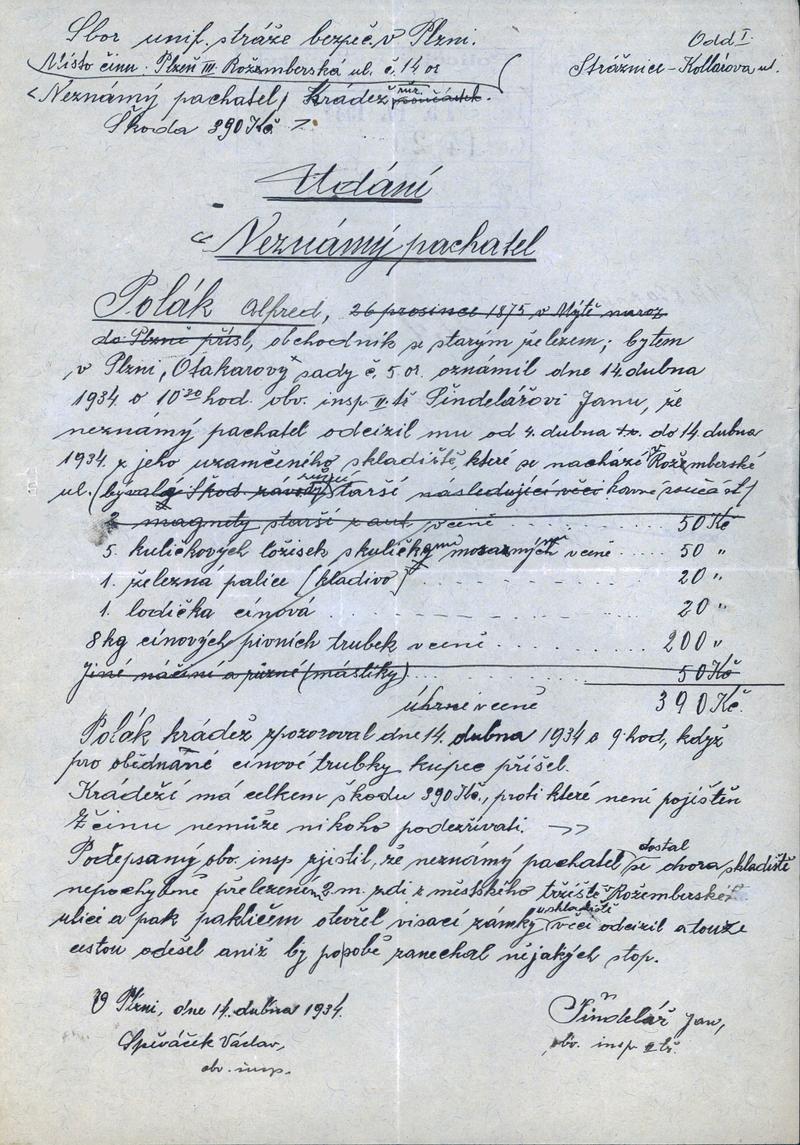 Sbor unif. stráže bezpeč. v Plzni. Odd I.
Místo činu. Plzeň III Rožemberská ul. č. 14 or Strážnice - Kollárova ul.
Neznámý pachatel) Krádež různ. součástek.
Škoda 390 Kč
Udání
Neznámý pachatel
Polák Alfred, 26 prosince 1875 v Mýtě naroz
do Plzně přísl, obchodník se starým železem; bytem
v Plzni, Otakarovy sady č. 5 or. oznámil dne 14. dubna
1934 o 10³⁰ hod. obv. insp II. tř Šindelářovi Janu, že
neznámý pachatel odcizil mu od 4. dubna t.r. do 14. dubna
1934 z jeho uzamčeného skladiště, které se nachází v Rožemberské
ul. (bývalé Škod. závody) různé starší následující věci kovové součásti
2 magnety starší z aut v ceně 50 Kč
5. kuličkových ložisek s kuličkami mosaznými v ceně ..... 50 "
1. železná palice (kladivo) ..... 20 "
1. lodička cínová ..... 20 "
8 kg cínových pivních trubek v ceně ..... 200 "
Jiné náčiní a různé (máslíky) ..... 50 Kč
úhrné v ceně 390 Kč.
Polák krádež zpozoroval dne 14. dubna 1934 o 9. hod, když
pro objednané cínové trubky kupec přišel.
Krádeží má celkem škodu 390 Kč., proti které není pojištěn
Z činu nemůže nikoho podezřívati.
Podepsaný obv. insp zjistil, že neznámý pachatel dostal se dvora skladiště
nepochybně přelezením 2. m. zdi z městského tržiště v Rožemberské
ulici a pak paklíčem otevřel visací zámky u skladiště věci odcizil a touže
cestou odešel aniž by po sobě zanechal nějakých stop.
V Plzni, dne 14. dubna 1934. Šindelář Jan,
Spěváček Václav, obv. insp II tř.
obv. insp.